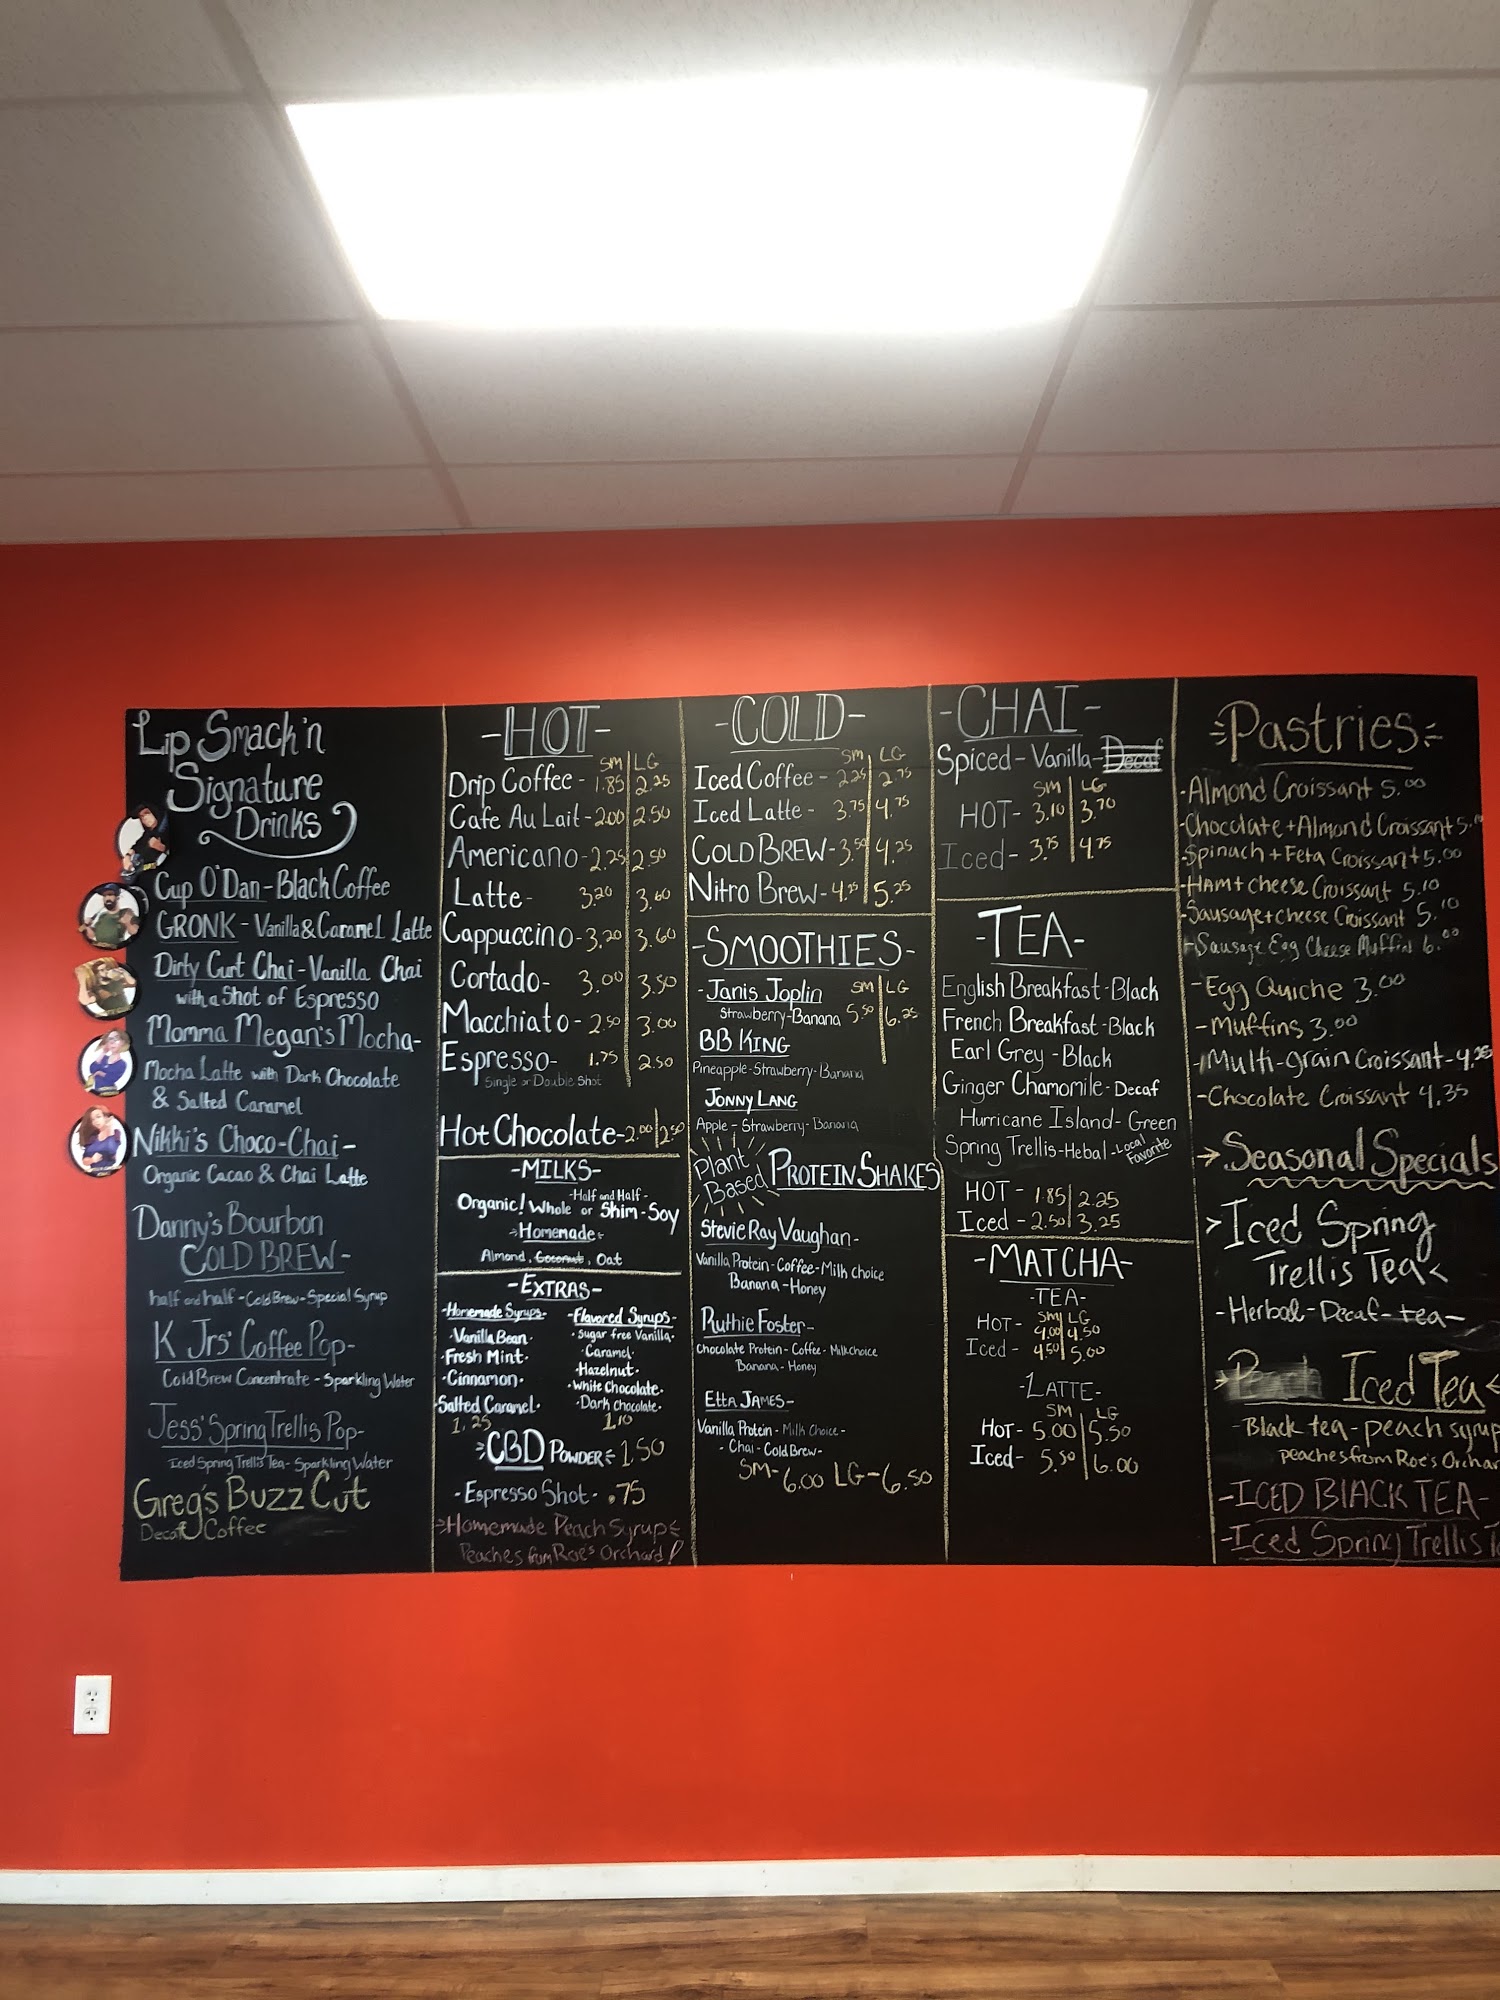 Lip Smack'n
Signature
Drinks
Cup O'Dan - Black Coffee
GRONK - Vanilla & Caramel Latte
Dirty Curt Chai - Vanilla Chai
with a Shot of Espresso
Momma Megan's Mocha -
Mocha Latte with Dark Chocolate
& Salted Caramel
Nikhi's Choco-Chai -
Organic Cacao & Chai Latte
Danny's Bourbon
COLD BREW -
half and half - Cold Brew - Special Syrup
K Jrs' Coffee Pop -
Cold Brew Concentrate - Sparkling Water
Jess' Spring Trellis Pop -
Iced Spring Trellis Tea - Sparkling Water
Greg's Buzz Cut
Decaf Coffee
- HOT -
SM | LG
Drip Coffee - 1.85 | 2.25
Cafe Au Lait - 2.00 | 2.50
Americano - 2.25 | 2.50
Latte - 3.20 | 3.60
Cappuccino - 3.20 | 3.60
Cortado - 3.00 | 3.50
Macchiato - 2.50 | 3.00
Espresso - 1.75 | 2.50
Single or Double Shot
Hot Chocolate - 2.00 | 2.50
- MILKS -
- Half and Half -
Organic! Whole or Shim - Soy
Homemade
Almond, Coconut, Oat
- EXTRAS -
Homemade Syrups - Flavored Syrups -
· Vanilla Bean · · Sugar free Vanilla ·
· Fresh Mint · · Caramel ·
· Cinnamon · · Hazelnut ·
· White Chocolate ·
· Salted Caramel · · Dark Chocolate ·
1.25 1.10
CBD POWDER 1.50
- Espresso Shot - .75
Homemade Peach Syrup
Peaches from Roe's Orchard!
- COLD -
SM | LG
Iced Coffee - 2.25 | 2.75
Iced Latte - 3.75 | 4.75
COLD BREW - 3.50 | 4.25
Nitro Brew - 4.25 | 5.25
- SMOOTHIES -
SM | LG
- Janis Joplin
Strawberry - Banana 5.50 | 6.25
BB KING
Pineapple - Strawberry - Banana
JONNY LANG
Apple - Strawberry - Banana
Plant Based PROTEIN SHAKES
Stevie Ray Vaughan -
Vanilla Protein - Coffee - Milk choice
Banana - Honey
Ruthie Foster -
Chocolate Protein - Coffee - Milk choice
Banana - Honey
ETTA JAMES -
Vanilla Protein - Milk Choice -
- Chai - Cold Brew -
SM - 6.00 LG - 6.50
- CHAI -
Spiced - Vanilla - Decaf
SM | LG
HOT - 3.10 | 3.70
Iced - 3.75 | 4.75
- TEA -
English Breakfast - Black
French Breakfast - Black
Earl Grey - Black
Ginger Chamomile - Decaf
Hurricane Island - Green
Spring Trellis - Hebal - Local Favorite
HOT - 1.85 | 2.25
Iced - 2.50 | 3.25
- MATCHA -
- TEA -
SM | LG
HOT - 4.00 | 4.50
Iced - 4.50 | 5.00
- LATTE -
SM | LG
Hot - 5.00 | 5.50
Iced - 5.50 | 6.00
Pastries
- Almond Croissant 5.00
- Chocolate + Almond Croissant 5.10
- Spinach + Feta Croissant 5.00
- HAM + cheese Croissant 5.10
- Sausage + cheese Croissant 5.10
- Sausage Egg Cheese Muffin 6.00
- Egg Quiche 3.00
- Muffins 3.00
- Multi-grain Croissant - 4.25
- Chocolate Croissant 4.35
→ Seasonal Specials
> Iced Spring
Trellis Tea <
- Herbal - Decaf - tea -
Iced Tea
- Black tea - peach syrup
peaches from Roe's Orchar
- ICED BLACK TEA -
- Iced Spring Trellis